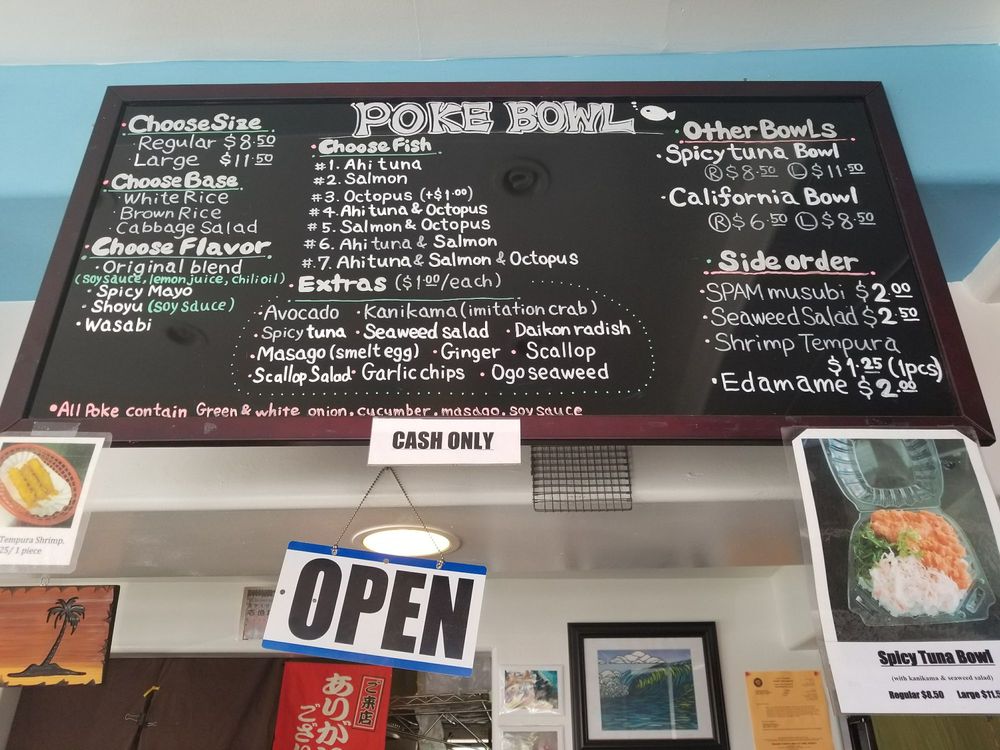 POKE BOWL
Choose Size
· Regular $8.50
· Large $11.50
· Choose Base
· White Rice
· Brown Rice
· Cabbage Salad
· Choose Flavor
· Original blend
(soy sauce, lemon juice, chili oil)
· Spicy Mayo
· Shoyu (soy sauce)
· Wasabi
· Choose Fish
#1. Ahi tuna
#2. Salmon
#3. Octopus (+$1.00)
#4. Ahi tuna & Octopus
#5. Salmon & Octopus
#6. Ahi tuna & Salmon
#.7. Ahi tuna & Salmon & Octopus
· Extras ($1.00/each)
· Avocado · Kanikama (imitation crab)
· Spicy tuna · Seaweed salad · Daikon radish
· Masago (smelt egg) · Ginger · Scallop
· Scallop Salad · Garlic chips · Ogo seaweed
· All Poke contain Green & white onion, cucumber, masago, soy sauce
· Other Bowls
· Spicy tuna Bowl
Ⓡ $8.50 Ⓛ $11.50
· California Bowl
Ⓡ $6.50 Ⓛ $8.50
· Side order
· SPAM musubi $2.00
· Seaweed Salad $2.50
· Shrimp Tempura
$1.25 (1pcs)
· Edamame $2.00
CASH ONLY
Tempura Shrimp.
25/ 1 piece
OPEN
ご来店
ありが
ござ
Spicy Tuna Bowl
(with kanikama & seaweed salad)
Regular $8.50 Large $11.5